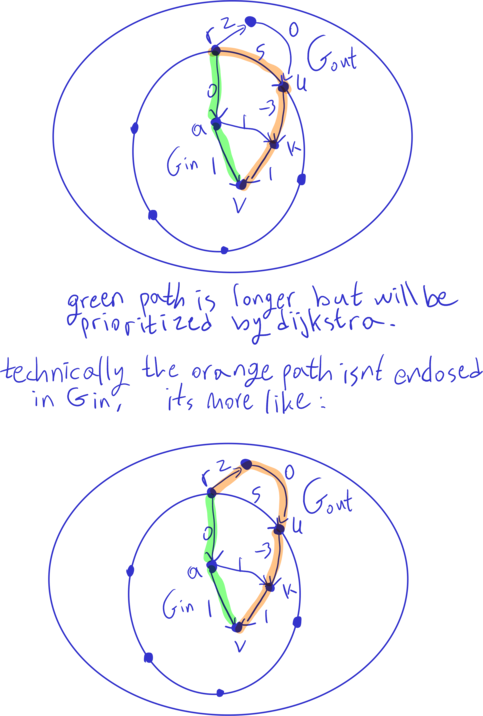 r 2 0
5 Gout
0 u
-3
a 1
K
Gin 1 1
V
green path is longer but will be
prioritized by dijkstra.
technically the orange path isnt enclosed
in Gin, its more like:
r 2 0
5 Gout
0 u
-3
a 1
K
Gin 1 1
V